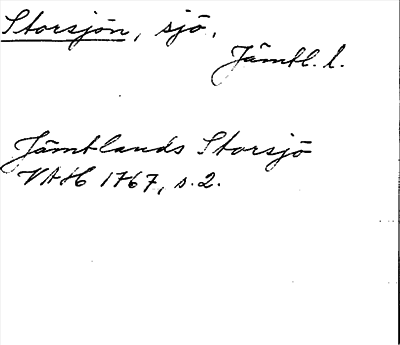 Storsjön, sjö.
Jämtl. l.
Jämtlands Storsjö
VAH 1767, s. 2.